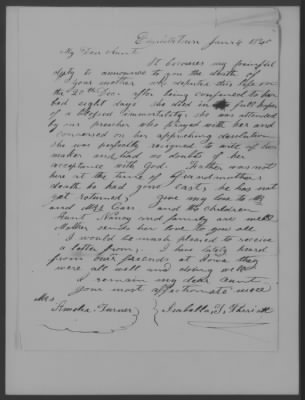 Jany 4
My Dear Aunt
It becomes my painful
duty to announce to you the death of
your mother who departed this life on
the 20th Dec. after being confined to her
bed eight days she died in full hope
of a blessed immortality she was attended
by our preacher who prayed with her and
conversed on her approching desolution
she was perfectly resigned to will of her
maker and had no doubts of her
acceptance with God. Father was not
here at the time of Grandmothers
death he had gone east, he has not
yet returned, give my love to Mr
and Mrs and the children
Aunt Nancy and family are well
Mother sends her love to you all
I would be much pleased to receive
a letter from I have lately heard
from our friends at they
were all well and doing well
I remain my dear aunt
your most affectionate niece
Mrs.
Amelia Turner
Isabella S.